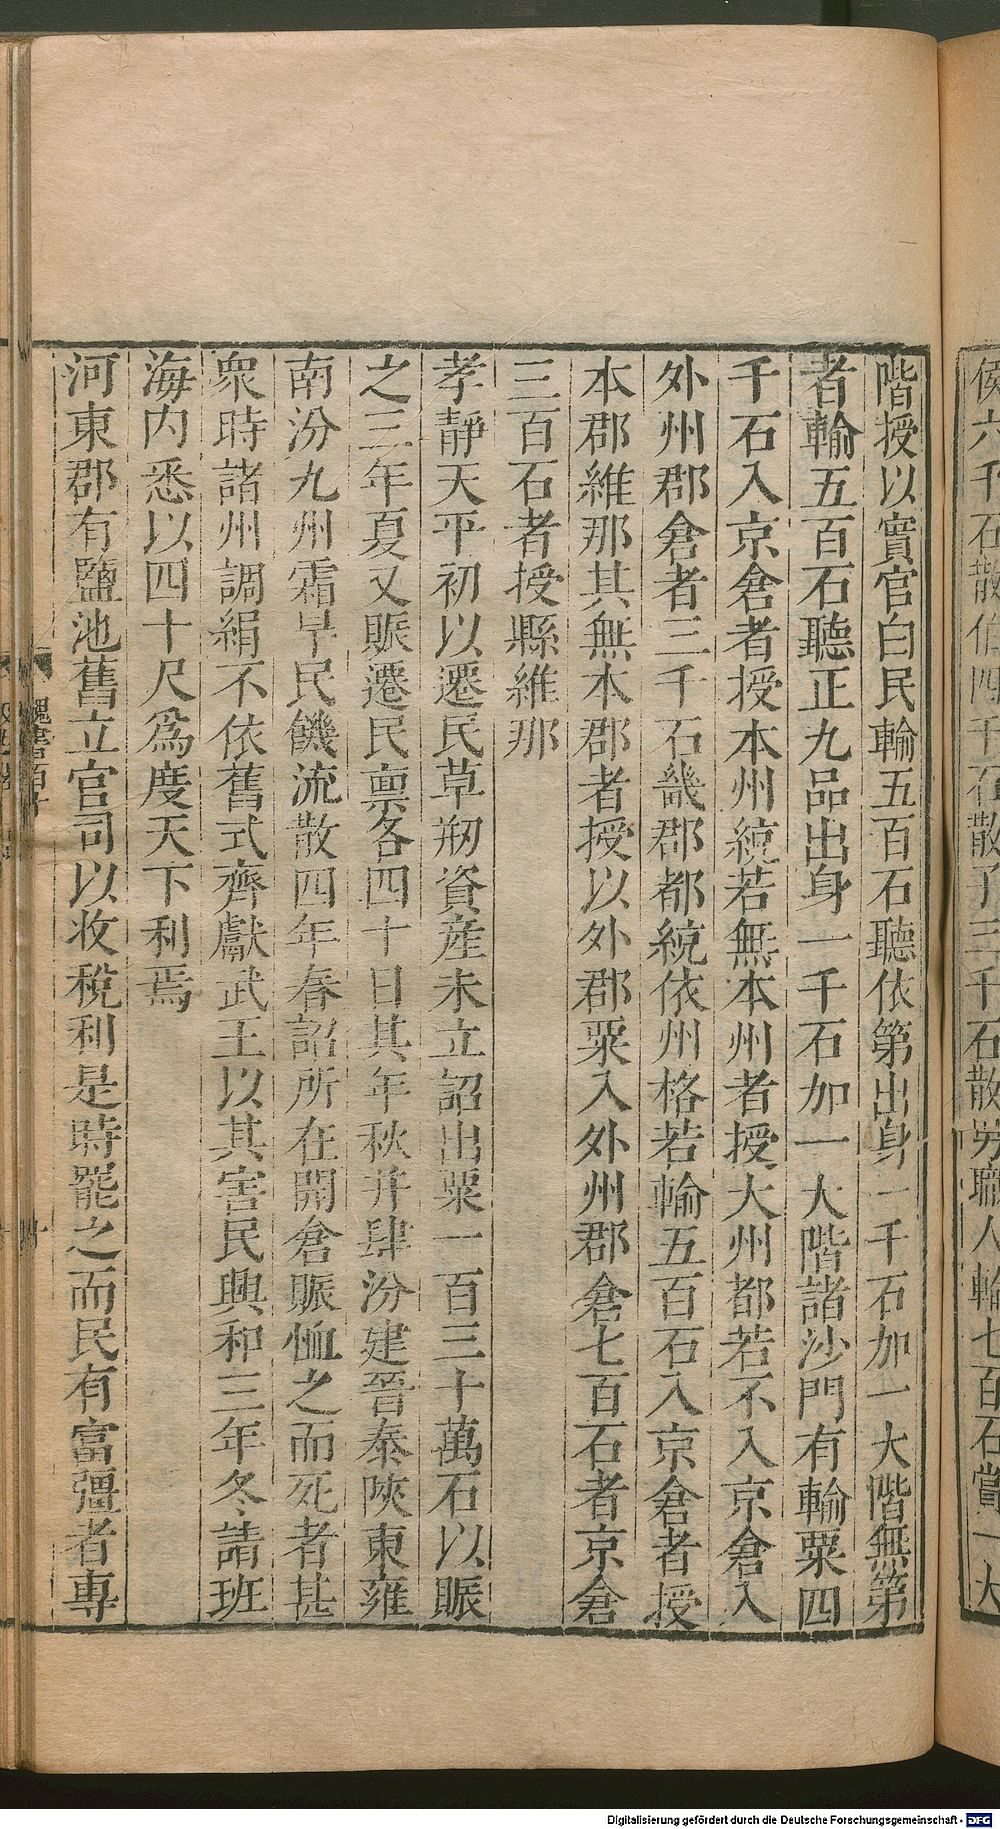 侯六千石散伯四千石散子三千石散男職人輸七百石賞一大
階授以實官白民輸五百石聽依第出身一千石加一大階無第
者輸五百石聽正九品出身一千石加一大階諸沙門有輸粟四
千石入京倉者授本州統若無本州者授大州都若不入京倉入
外州郡倉者三千石畿郡都統依州格若輸五百石入京倉者授
本郡維那其無本郡者授以外郡粟入外州郡倉七百石者京倉
三百石者授縣維那
孝靜天平初以遷民草剏資產未立詔出粟一百三十萬石以賑
之三年夏又賑遷民稟各四十日其年秋并肆汾建晉泰陝東雍
南汾九州霜旱民饑流散四年春詔所在開倉賑恤之而死者甚
衆時諸州調絹不依舊式齊獻武王以其害民興和三年冬請班
海内悉以四十尺爲度天下利焉
河東郡有鹽池舊立官司以收稅利是時罷之而民有富彊者專
Digitalisierung gefördert durch die Deutsche Forschungsgemeinschaft - DFG